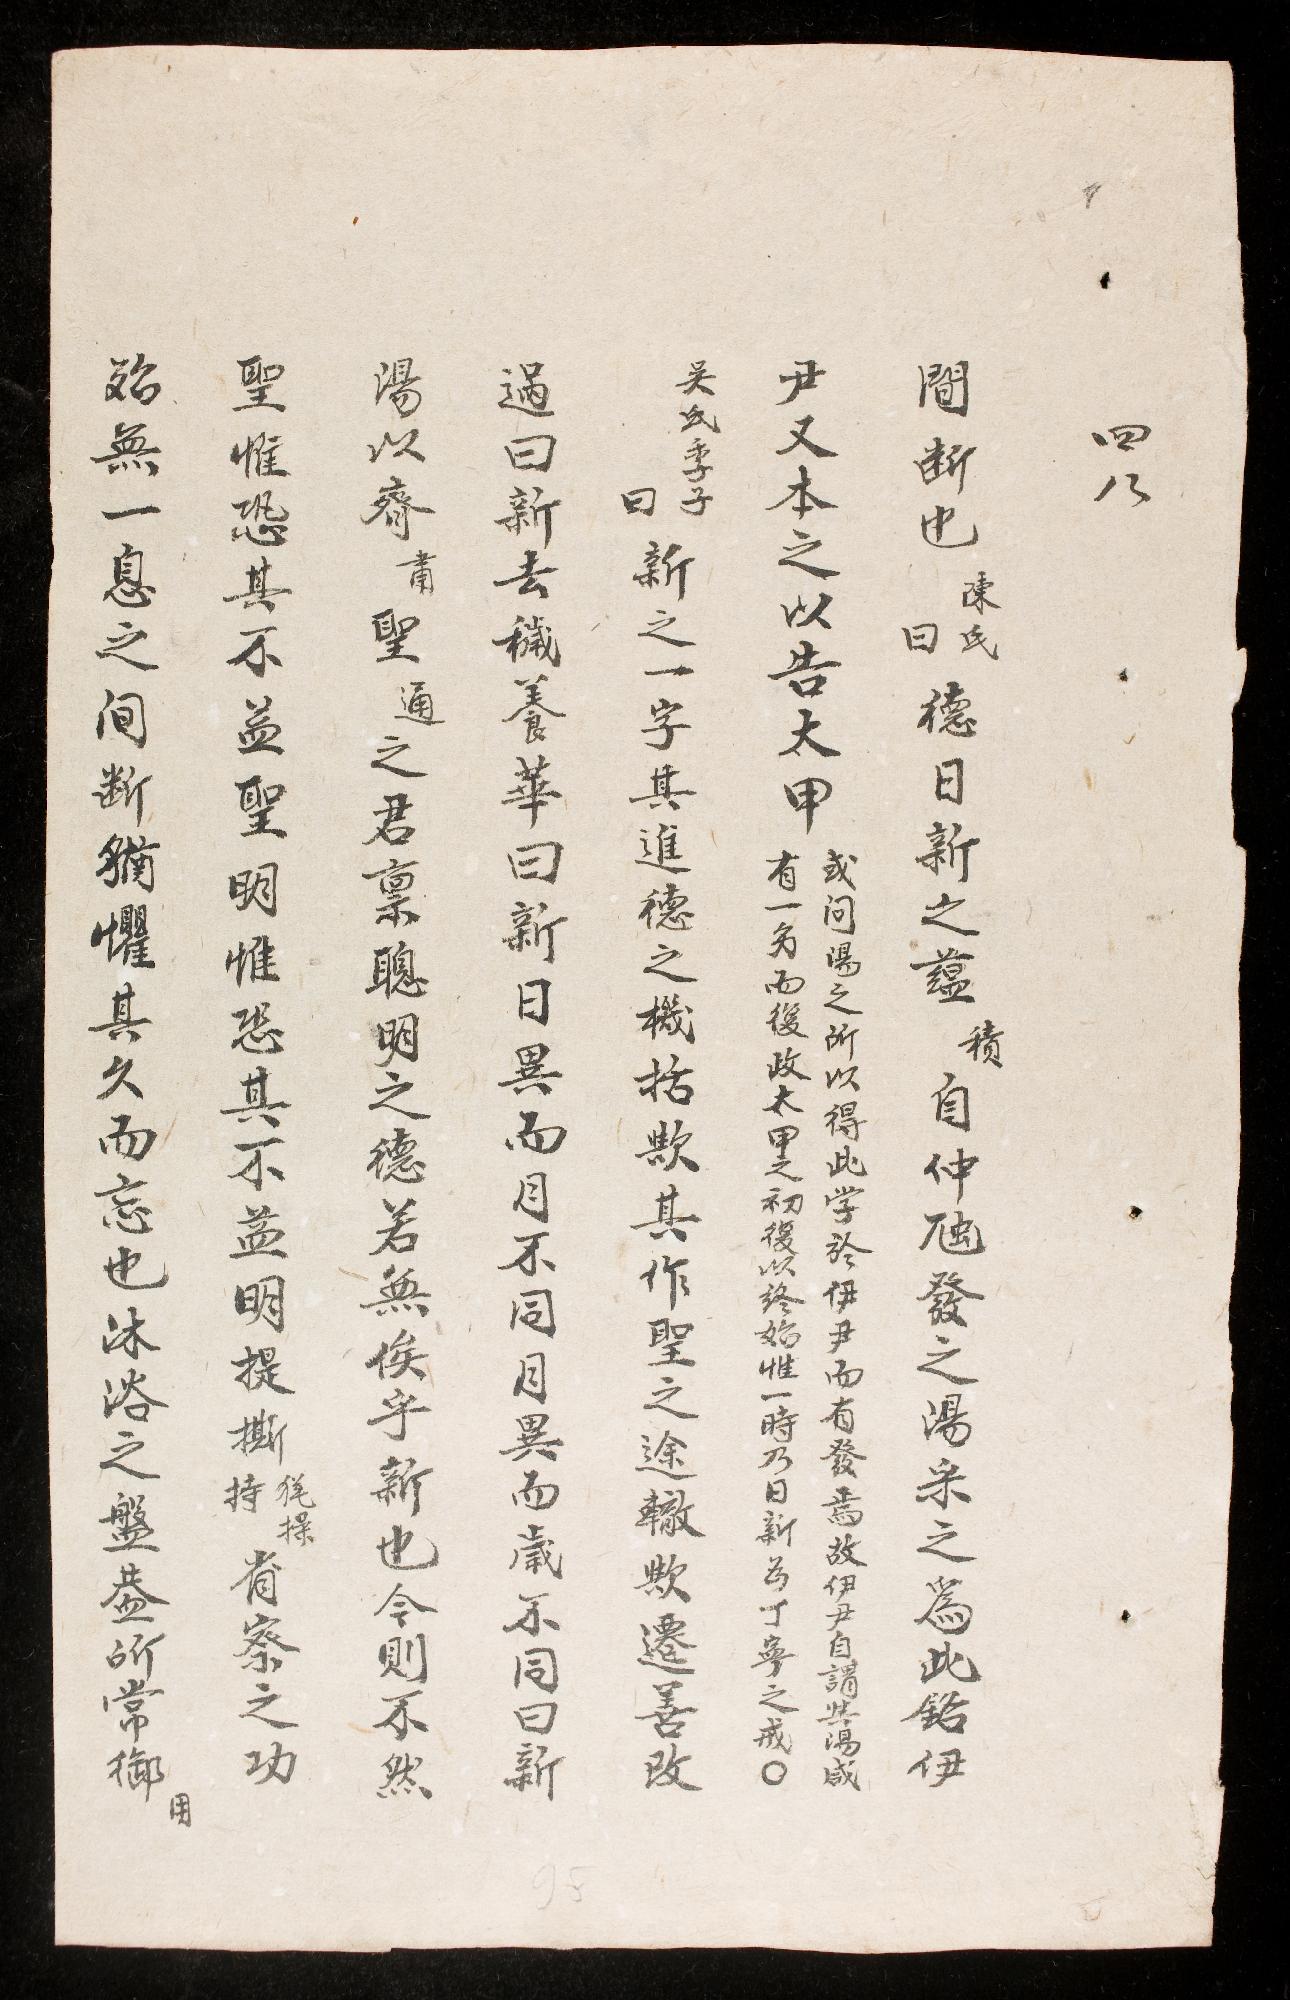 四八
間断也陳氏曰德日新之蕴積自仲虺發之湯采之爲此銘伊
尹又本之以告太甲或问湯之所以得此学於伊尹而有發焉故伊尹自謂共湯咸
有一夛而復政太甲之初復以终始惟一時乃日新为丁寧之戒〇
吴氏季子曰新之一字其進德之機括欤其作聖之途轍欤遷善改
過曰新去穢養華曰新日異而月不同月異而歲不同曰新
湯以齊肅聖通之君禀聰明之德若無俟乎新也今則不然
聖惟恐其不益聖明惟恐其不益明提撕犹操持省察之功
始無一息之间断猶懼其久而忘也沐浴之盤盎所常御用
95